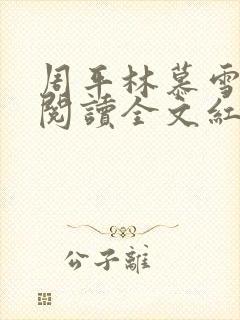 周平林慕雪
閱讀全文紅
公子離